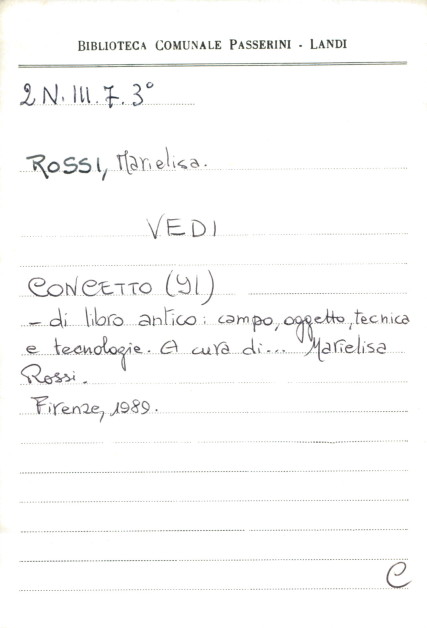 BIBLIOTECA COMUNALE PASSERINI - LANDI
2 N. III. 7. 3°
ROSSI, Marielisa.
VEDI
CONCETTO (Il)
- di libro antico: campo, oggetto, tecnica
e tecnologie. A cura di... Marielisa
Rossi.
Firenze, 1989.
C